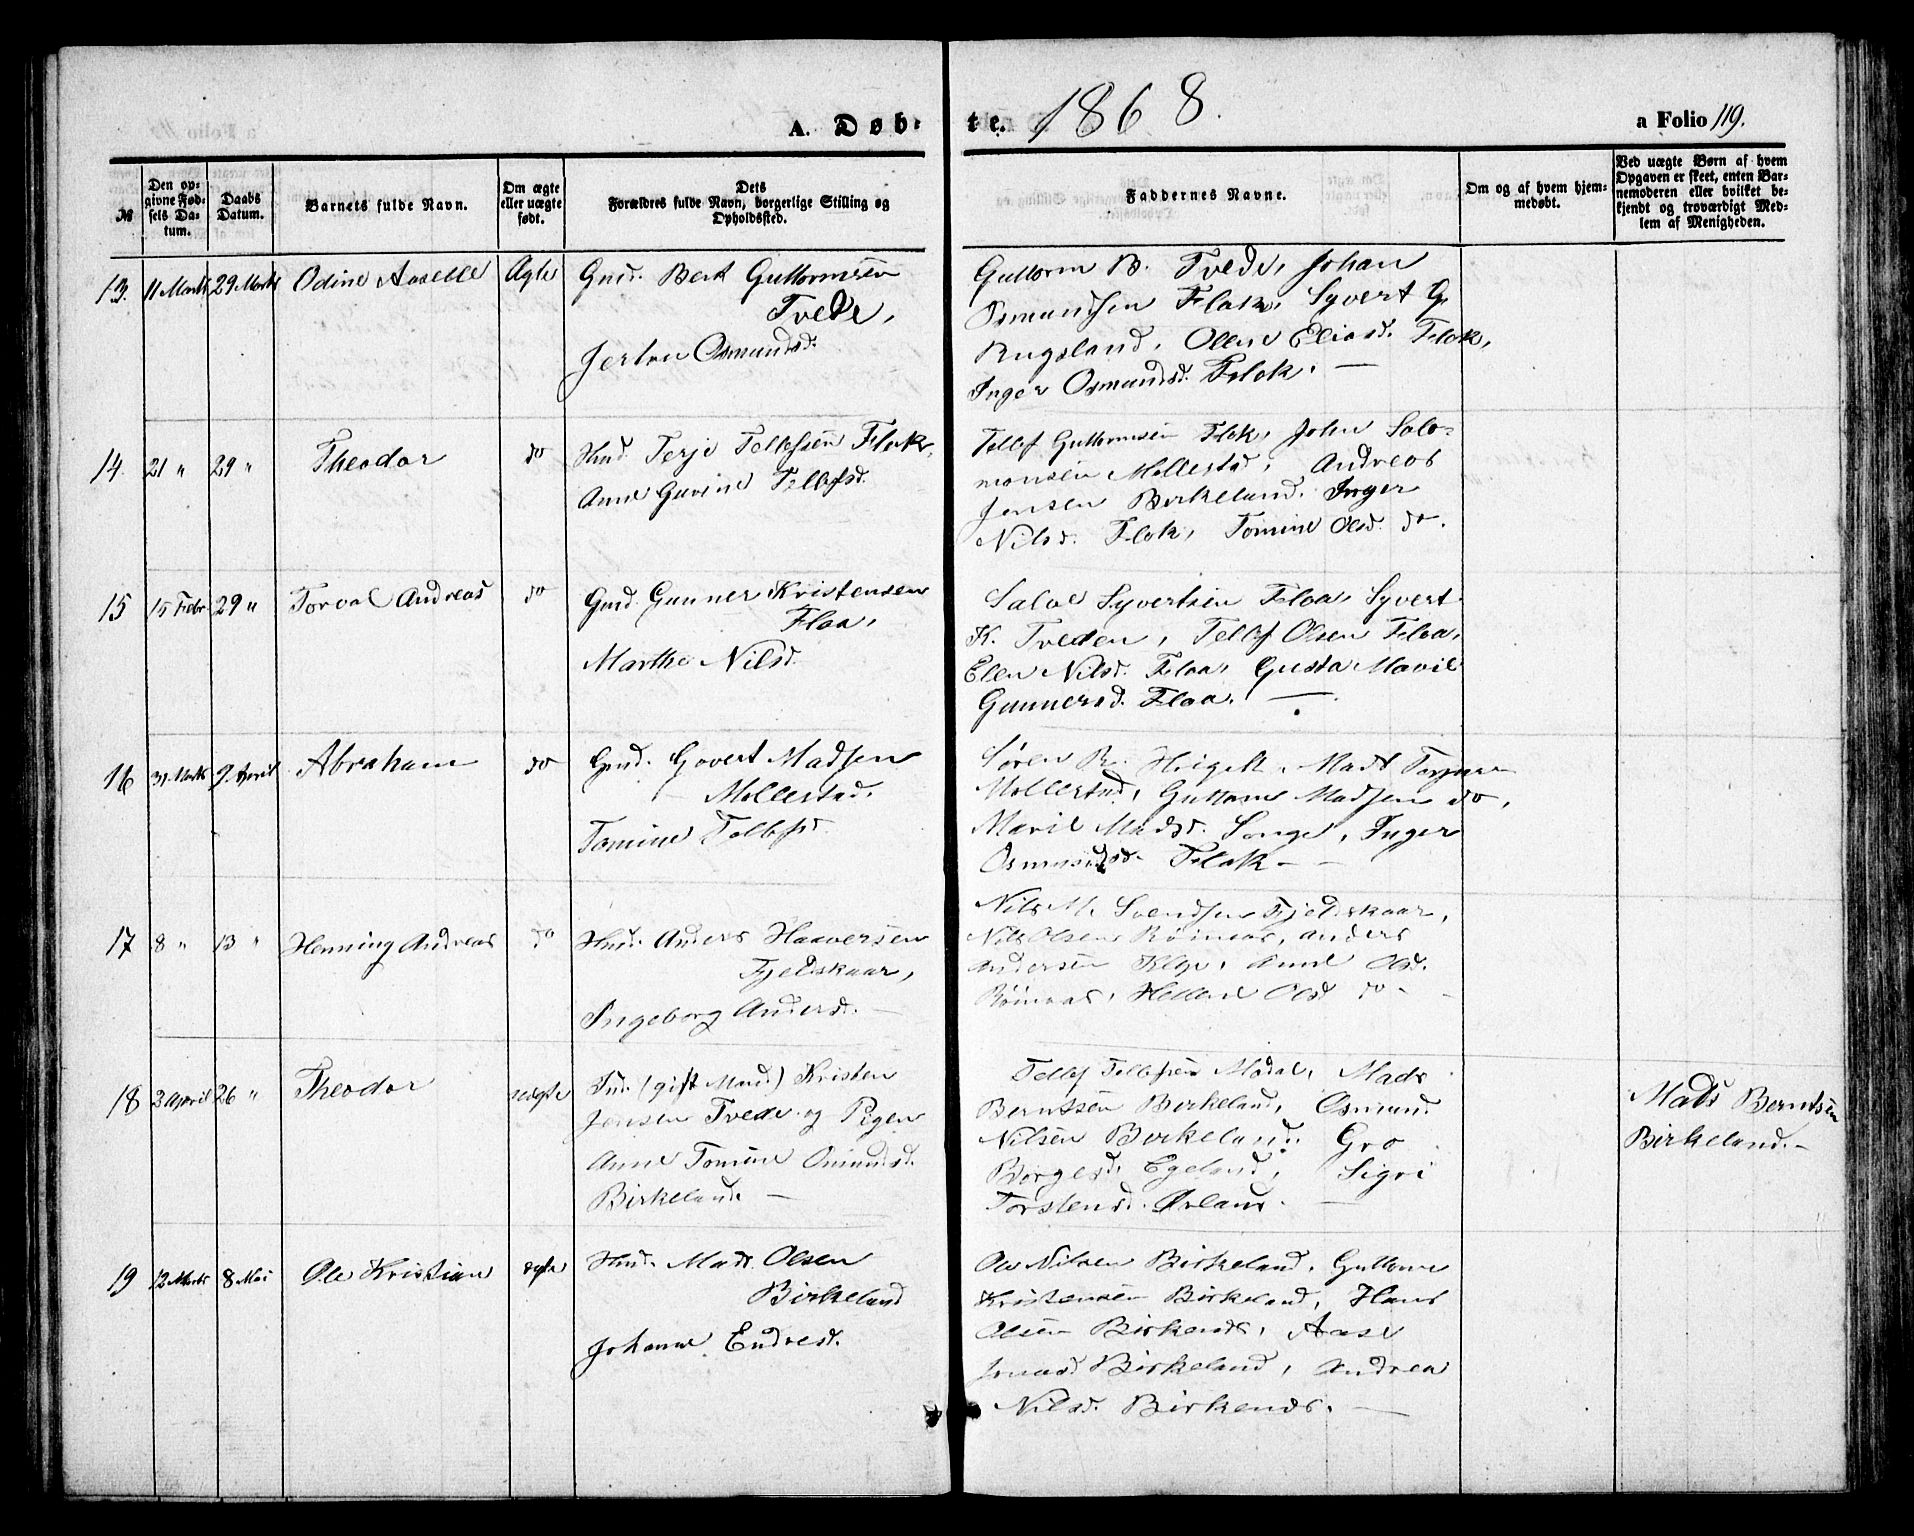 A. Døb-
te. 1868.
a Folio 119.
№
Den opgivne Fødsels Datum.
Daabs Datum.
Barnets fulde Navn.
Om ægte eller uægte født.
Dets Forældres fulde Navn, borgerlige Stilling og Opholdssted.
Faddernes Navne.
Om og af hvem hjemmedøbt.
Ved uægte Børn af hvem Opgaven er skeet, enten Barnemoderen eller hvilket bekjendt og troværdigt Medlem af Menigheden.
13. 11 Marts 29 Marts Odine Aaseble Ægte Gmd. Bert Guttormsen
Tvede,
Jerton Osmundsd.
Guttorm B. Tvede, Johan
Osmundsen Flak, Syvert G.
Rugsland, Oline Eliasd. Flak,
Inger Osmundsd. Flak. —
14. 21 " 29 " Theodor do Hmd. Terje Tellefsen Flak,
Anne Gurine Tellefsd.
Tellef Guttormsen Flak, John Salo-
monsen Mollestad, Andreas
Jensen Birkeland, Inger
Nilsd. Flak, Tomine Olsd. do.
15 15 Febr 29 " Torval Andreas do Gmd. Gunner Kristensen
Flaa,
Marthe Nilsd.
Salve Syvertsen Flaa, Syvert
K. Tveden, Tellef Olsen Flaa,
Elen Nilsd. Flaa, Gusta Marie
Gunnersd. Flaa. —
16 31 Marts 9 April Abraham do Gmd. Govert Madsen
Mollestad,
Tomine Tellefsd.
Søren R. Mads
Mollestad, Guttorm Madsen do,
Maril Madsd. Songe, Inger
Osmundsd. Flak —
17 8 " 13 " Henning Andreas do Hmd. Anders Haaversen
Fjeldskaar,
Ingeborg Andersd. —
Nils M. Svendsen Fjeldskaar,
Nils Olsen Røinaas, Anders
Andersen Anne Olsd.
Røinaas, Hellene Olsd do —
18 2 April 26 " Theodor uægte Ind. (gift Mand) Kristen
Jensen Tvede og Pigen
Anne Tomine Osmundsd.
Birkeland. —
Tellef Tellefsen Modal, Mads
Berntsen Birkeland, Osmund
Nilsen Birkeland, Gro
Borgesd. Egeland, Sigri
Torstensd. —
Mads Berntsen
Birkeland. —
19 12 Marts 8 Mai Ole Kristian ægte Hmd. Mads Olsen
Birkeland
Johanne Endresd.
Ole Nilsen Birkeland, Guttorm
Kristensen Birkeland, Hans
Olsen Birkenes, Aase
Jonasd Birkeland, Andrea
Nilsd. Birkenes. —